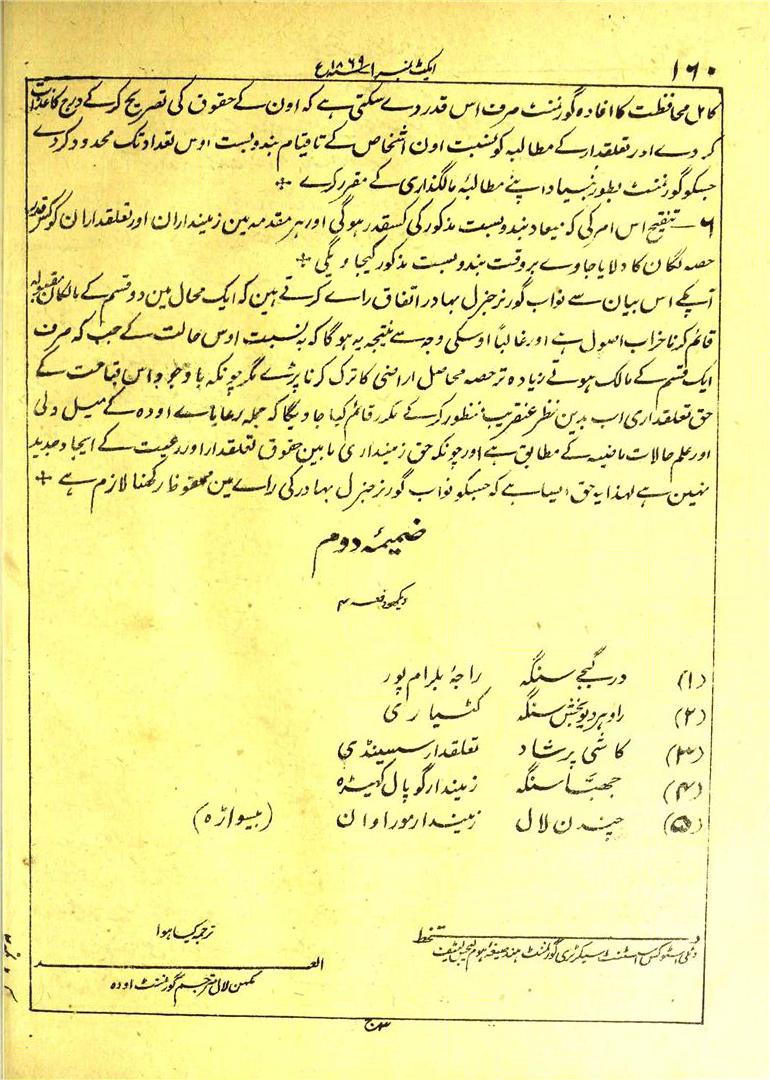 ۱۶۰
ایکٹ نمبر ۱ سنہ ۱۸۶۹ع
کامل محافظت کا افادہ گورنمنٹ صرف اس قدر دے سکتی ہے کہ اون کے حقوق کی تصریح کر کے درج کاغذات
کر دے اور تعلقدار کے مطالبہ کو بنسبت اون اشخاص کے تا قیام بندوبست اوس تعداد تک محدود کر دے
جسکو گورنمنٹ بطور بنیاد اپنے مطالبۂ مالگذاری کے مقرر کرے +
۶ — تنقیح اس امر کی کہ میعاد بندوبست مذکور کی کسقدر ہوگی اور ہر مقدمہ مین زمینداران اور تعلقداران کو کس قدر
حصہ لگان کا دلایا جاوے بروقت بندوبست مذکور کیجاویگی +
آپکے اس بیان سے نواب گورنر جنرل بہادر اتفاق راے کرتے ہین کہ ایک محال مین دو قسم کے مالکان مقبولہ
قائم کرنا خراب اصول ہے اور غالباً اوسکی وجہ سے نتیجہ یہ ہوگا کہ بہ نسبت اوس حالت کے جب کہ صرف
ایک قسم کے مالک ہوتے زیادہ تر حصہ محاصل اراضی کا ترک کرنا پڑے مگر چونکہ باوجود اس قباحت کے
حق تعلقداری اب بدین نظر عنقریب منظور کر کے مکرر قائم کیا جاویگا کہ جملہ رعایاے اودہ کے میل دلی
اور علم حالات ماضیہ کے مطابق ہے اور چونکہ حق زمینداری مابین حقوق تعلقدار اور رعیت کے ایجاد جدید
نہین ہے لہذا یہ حق ایسا ہے کہ جسکو نواب گورنر جنرل بہادر کی راے مین محفوظ رکھنا لازم ہے +
ضمیمۂ دوم
دیکھو دفعہ ۴
(۱) درگبجے سنگہ راجۂ بلرام پور
(۲) راو ہردیو بخش سنگہ کٹیاری
(۳) کاشی پرشاد تعلقدار سسینڈی
(۴) جھبّا سنگہ زمیندار گوپال کھیڑہ
(۵) چندن لال زمیندار موراوان (بیسواڑہ)
دستخط
وٹلی اسٹوکس اسسٹنٹ سیکرٹری گورنمنٹ ہند صیغہ ہوم لیجسلیٹیف
ترجمہ کیا ہوا
العبد
کمہن لال مترجم گورنمنٹ اودہ